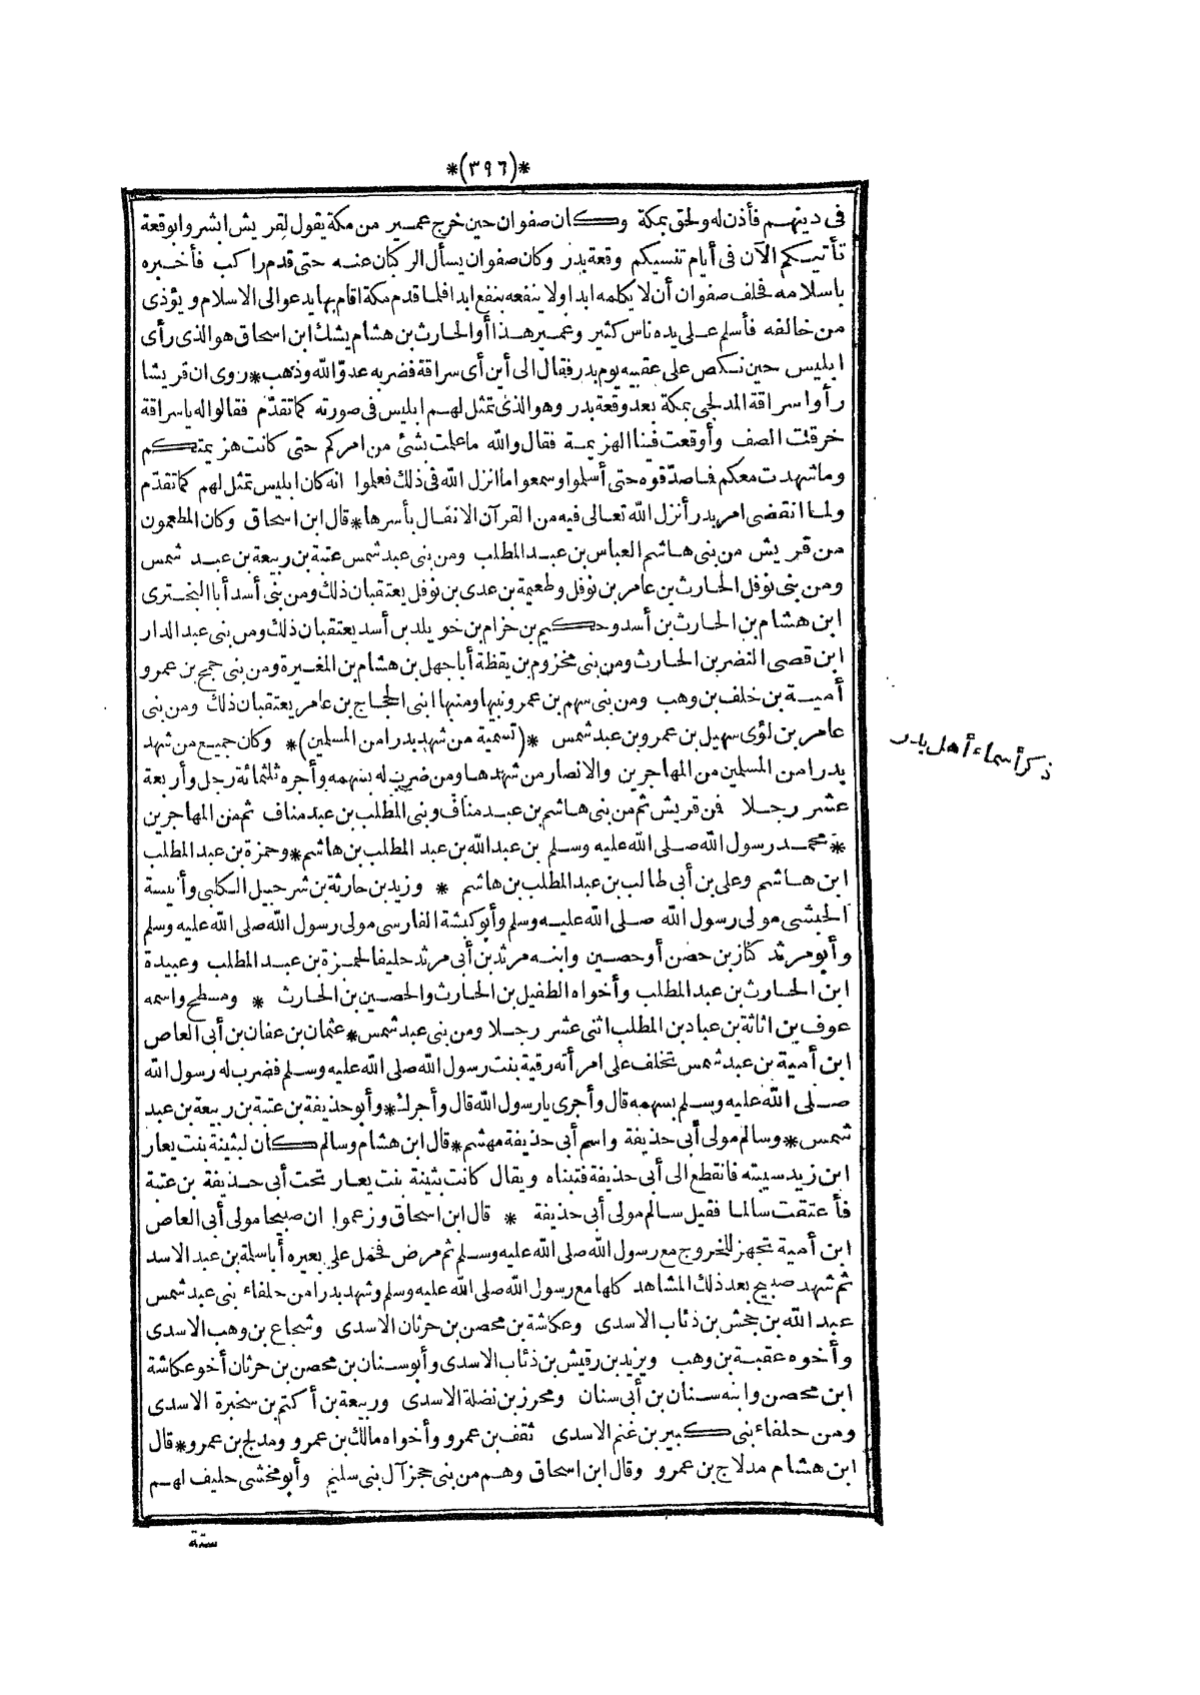 *(٣٩٦)*
فى دينهم فأذن له ولحق بمكة وكان صفوان حين خرج عمير من مكة يقول لقريش ابشروا بوقعة
تأتيكم الآن فى أيام تنسيكم وقعة بدر وكان صفوان يسأل الركبان عنه حتى قدم راكب فأخبره
باسلامه فحلف صفوان أن لا يكلمه ابدا ولا ينفعه بنفع ابدا فلما قدم مكة اقام بها يدعو الى الاسلام ويؤذى
من خالفه فأسلم على يده ناس كثير وعمير هذا أو الحارث بن هشام يشك ابن اسحاق هو الذى رأى
ابليس حين نكص على عقبيه يوم بدر فقال الى أين أى سراقة فضربه عدوّ الله وذهب*روى ان قريشا
رأوا سراقة المدلجى بمكة بعد وقعة بدر وهو الذى تمثل لهم ابليس فى صورته كما تقدّم فقالوا له ياسراقة
خرقت الصف وأوقعت فينا الهزيمة فقال والله ما علمت بشئ من امركم حتى كانت هزيمتكم
وما شهدت معكم فما صدّقوه حتى أسلموا وسمعوا ما انزل الله فى ذلك فعلموا انه كان ابليس تمثل لهم كما تقدّم
ولما انقضى امر بدر أنزل الله تعالى فيه من القرآن الانفال بأسرها*قال ابن اسحاق وكان المطعمون
من قريش من بنى هاشم العباس بن عبد المطلب ومن بنى عبد شمس عتبة بن ربيعة بن عبد شمس
ومن بنى نوفل الحارث بن عامر بن نوفل وطعيمة بن عدى بن نوفل يعتقبان ذلك ومن بنى أسد أبا البخترى
ابن هشام بن الحارث بن أسد وحكيم بن حزام بن خويلد بن أسد يعتقبان ذلك ومن بنى عبد الدار
ابن قصى النضر بن الحارث ومن بنى مخزوم بن يقظة أبا جهل بن هشام بن المغيرة ومن بنى جمح بن عمرو
أمية بن خلف بن وهب ومن بنى سهم بن عمرو نبيها ومنبها ابنى الحجاج بن عامر يعتقبان ذلك ومن بنى
عامر بن لؤى سهيل بن عمرو بن عبد شمس *(تسمية من شهد بدرا من المسلمين)* وكان جميع من شهد
ذكر أسماء أهل بدر
بدرا من المسلمين من المهاجرين والانصار من شهدها ومن ضرب له بسهمه وأجره ثلثمائة رجل وأربعة
عشر رجلا فمن قريش ثم من بنى هاشم بن عبد مناف وبنى المطلب بن عبد مناف ثم من المهاجرين
*محمد رسول الله صلى الله عليه وسلم بن عبد الله بن عبد المطلب بن هاشم*وحمزة بن عبد المطلب
ابن هاشم وعلى بن أبى طالب بن عبد المطلب بن هاشم * وزيد بن حارثة بن شرحبيل الكلبى وأنيسة
الحبشى مولى رسول الله صلى الله عليه وسلم وأبو كبشة الفارسى مولى رسول الله صلى الله عليه وسلم
وأبو مرثد كناز بن حصن أو حصين وابنه مرثد بن أبى مرثد حليفا لحمزة بن عبد المطلب وعبيدة
ابن الحارث بن عبد المطلب وأخواه الطفيل بن الحارث والحصين بن الحارث * ومسطح واسمه
عوف بن اثاثة بن عباد بن المطلب اثنى عشر رجلا ومن بنى عبد شمس*عثمان بن عفان بن أبى العاص
ابن أمية بن عبد شمس تخلف على امرأته رقية بنت رسول الله صلى الله عليه وسلم فضرب له رسول الله
صلى الله عليه وسلم بسهمه قال وأجرى يا رسول الله قال وأجرك*وأبو حذيفة بن عتبة بن ربيعة بن عبد
شمس*وسالم مولى أبى حذيفة واسم أبى حذيفة مهشم*قال ابن هشام وسالم كان لبثينة بنت يعار
ابن زيد سيبته فانقطع الى أبى حذيفة فتبناه ويقال كانت بثينة بنت يعار تحت أبى حذيفة بن عتبة
فأعتقت سالما فقيل سالم مولى أبى حذيفة * قال ابن اسحاق وزعموا ان صبيحا مولى أبى العاص
ابن أمية تجهز للخروج مع رسول الله صلى الله عليه وسلم ثم مرض فحمل على بعيره أبا سلمة بن عبد الاسد
ثم شهد صبيح بعد ذلك المشاهد كلها مع رسول الله صلى الله عليه وسلم وشهد بدرا من حلفاء بنى عبد شمس
عبد الله بن جحش بن ذئاب الاسدى وعكاشة بن محصن بن حرثان الاسدى وشجاع بن وهب الاسدى
وأخوه عقبة بن وهب ويزيد بن رقيش بن ذئاب الاسدى وأبو سنان بن محصن بن حرثان أخو عكاشة
ابن محصن وابنه سنان بن أبى سنان ومحرز بن نضلة الاسدى وربيعة بن أكتم بن سخبرة الاسدى
ومن حلفاء بنى كبير بن غنم الاسدى ثقف بن عمرو وأخواه مالك بن عمرو ومدلج بن عمرو*قال
ابن هشام مدلاج بن عمرو وقال ابن اسحاق وهم من بنى حجر آل بنى سليم وأبو مخشى حليف لهم
ستة